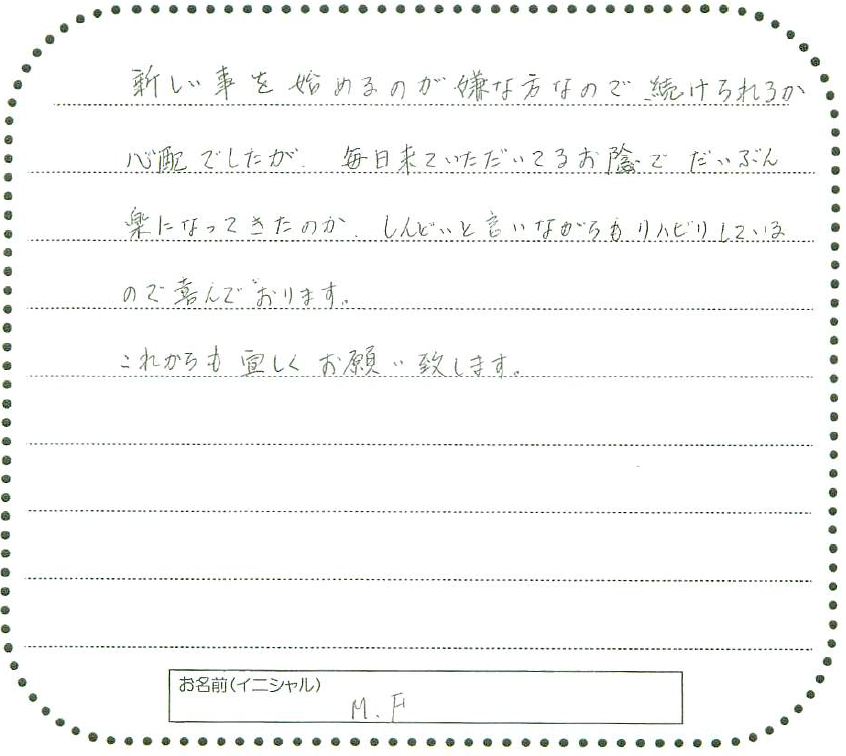 新しい事を始めるのが嫌な方なので続けられるか
心配でしたが、毎日来ていただいてるお陰でだいぶん
楽になってきたのか、しんどいと言いながらもリハビリしている
ので喜んでおります。
これからも宜しくお願い致します。
お名前(イニシャル)
M.F